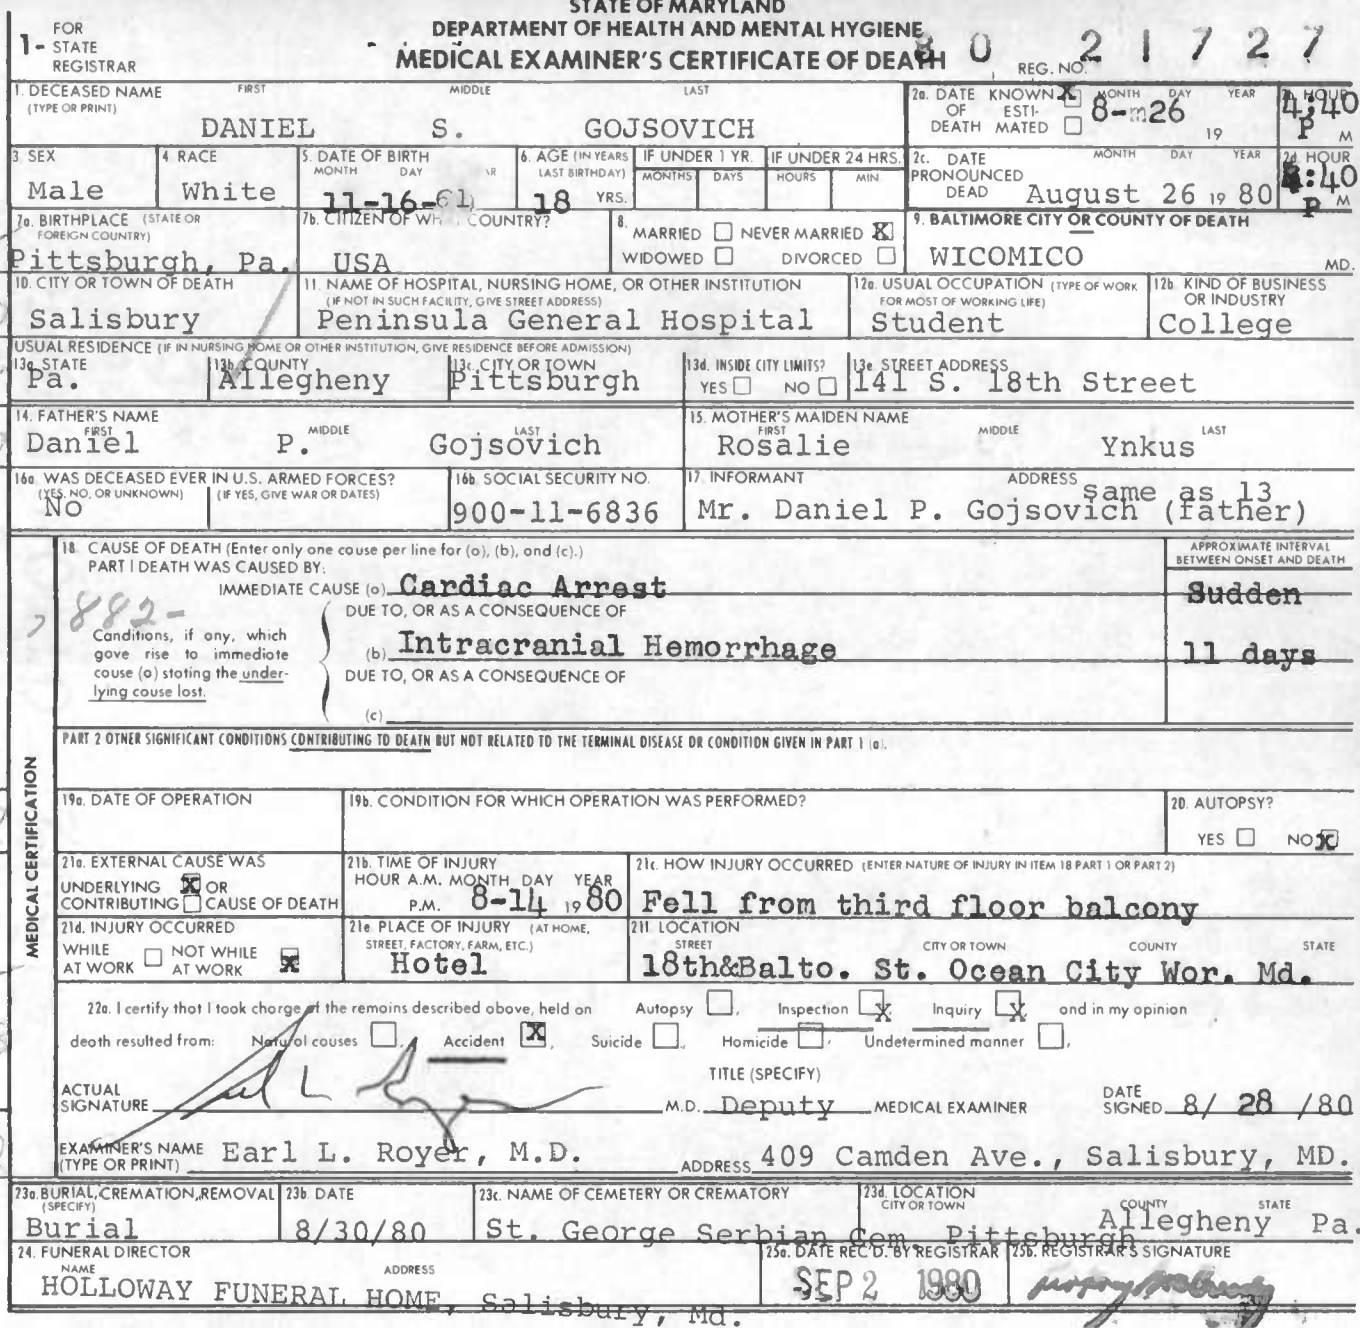 STATE OF MARYLAND
DEPARTMENT OF HEALTH AND MENTAL HYGIENE
MEDICAL EXAMINER'S CERTIFICATE OF DEATH
1 - FOR STATE REGISTRAR
REG. NO. 80 21727
1. DECEASED NAME (TYPE OR PRINT) FIRST MIDDLE LAST
DANIEL S. GOJSOVICH
2a. DATE OF DEATH KNOWN X ESTIMATED MONTH DAY YEAR
8- 26 19
2b. HOUR 4:40 P M
3. SEX Male
4. RACE White
5. DATE OF BIRTH MONTH DAY
11-16-61
6. AGE (IN YEARS LAST BIRTHDAY) 18 YRS.
IF UNDER 1 YR. MONTHS DAYS
IF UNDER 24 HRS. HOURS MIN
2c. DATE PRONOUNCED DEAD MONTH DAY YEAR
August 26 19 80
2d. HOUR :40 P M
7a. BIRTHPLACE (STATE OR FOREIGN COUNTRY)
Pittsburgh, Pa.
7b. CITIZEN OF COUNTRY?
USA
8. MARRIED NEVER MARRIED X
WIDOWED DIVORCED
9. BALTIMORE CITY OR COUNTY OF DEATH
WICOMICO MD.
10. CITY OR TOWN OF DEATH
Salisbury
11. NAME OF HOSPITAL, NURSING HOME, OR OTHER INSTITUTION
(IF NOT IN SUCH FACILITY, GIVE STREET ADDRESS)
Peninsula General Hospital
12a. USUAL OCCUPATION (TYPE OF WORK FOR MOST OF WORKING LIFE)
Student
12b. KIND OF BUSINESS OR INDUSTRY
College
USUAL RESIDENCE (IF IN NURSING HOME OR OTHER INSTITUTION, GIVE RESIDENCE BEFORE ADMISSION)
13a. STATE Pa.
13b. COUNTY Allegheny
13c. CITY OR TOWN Pittsburgh
13d. INSIDE CITY LIMITS? YES NO
13e. STREET ADDRESS 141 S. 18th Street
14. FATHER'S NAME FIRST MIDDLE LAST
Daniel P. Gojsovich
15. MOTHER'S MAIDEN NAME FIRST MIDDLE LAST
Rosalie Ynkus
16a. WAS DECEASED EVER IN U.S. ARMED FORCES?
(YES, NO, OR UNKNOWN) (IF YES, GIVE WAR OR DATES)
No
16b. SOCIAL SECURITY NO.
900-11-6836
17. INFORMANT ADDRESS
same as 13
Mr. Daniel P. Gojsovich (father)
MEDICAL CERTIFICATION
18. CAUSE OF DEATH (Enter only one cause per line for (a), (b), and (c).)
PART I DEATH WAS CAUSED BY:
APPROXIMATE INTERVAL BETWEEN ONSET AND DEATH
IMMEDIATE CAUSE (a) Cardiac Arrest Sudden
882-
DUE TO, OR AS A CONSEQUENCE OF
Conditions, if any, which gave rise to immediate cause (a) stating the underlying cause last.
(b) Intracranial Hemorrhage 11 days
DUE TO, OR AS A CONSEQUENCE OF
(c)
PART 2 OTHER SIGNIFICANT CONDITIONS CONTRIBUTING TO DEATH BUT NOT RELATED TO THE TERMINAL DISEASE OR CONDITION GIVEN IN PART 1 (a).
19a. DATE OF OPERATION
19b. CONDITION FOR WHICH OPERATION WAS PERFORMED?
20. AUTOPSY?
YES NO X
21a. EXTERNAL CAUSE WAS
UNDERLYING X OR
CONTRIBUTING CAUSE OF DEATH
21b. TIME OF INJURY
HOUR A.M. MONTH DAY YEAR
P.M. 8-14 19 80
21c. HOW INJURY OCCURRED (ENTER NATURE OF INJURY IN ITEM 18 PART 1 OR PART 2)
Fell from third floor balcony
21d. INJURY OCCURRED
WHILE AT WORK NOT WHILE AT WORK X
21e. PLACE OF INJURY (AT HOME, STREET, FACTORY, FARM, ETC.)
Hotel
21f. LOCATION
STREET CITY OR TOWN COUNTY STATE
18th&Balto. St. Ocean City Wor. Md.
22a. I certify that I took charge of the remains described above, held on Autopsy , Inspection X, Inquiry X, and in my opinion
death resulted from: Natural causes , Accident X, Suicide , Homicide , Undetermined manner ,
TITLE (SPECIFY)
ACTUAL SIGNATURE M.D. Deputy MEDICAL EXAMINER DATE SIGNED 8/ 28 /80
EXAMINER'S NAME (TYPE OR PRINT) Earl L. Royer, M.D. ADDRESS 409 Camden Ave., Salisbury, MD.
23a. BURIAL, CREMATION, REMOVAL (SPECIFY)
Burial
23b. DATE
8/30/80
23c. NAME OF CEMETERY OR CREMATORY
St. George Serbian Cem.
23d. LOCATION CITY OR TOWN COUNTY STATE
Pittsburgh Allegheny Pa.
24. FUNERAL DIRECTOR
NAME ADDRESS
HOLLOWAY FUNERAL HOME, Salisbury, Md.
25a. DATE REC'D. BY REGISTRAR
SEP 2 1980
25b. REGISTRAR'S SIGNATURE